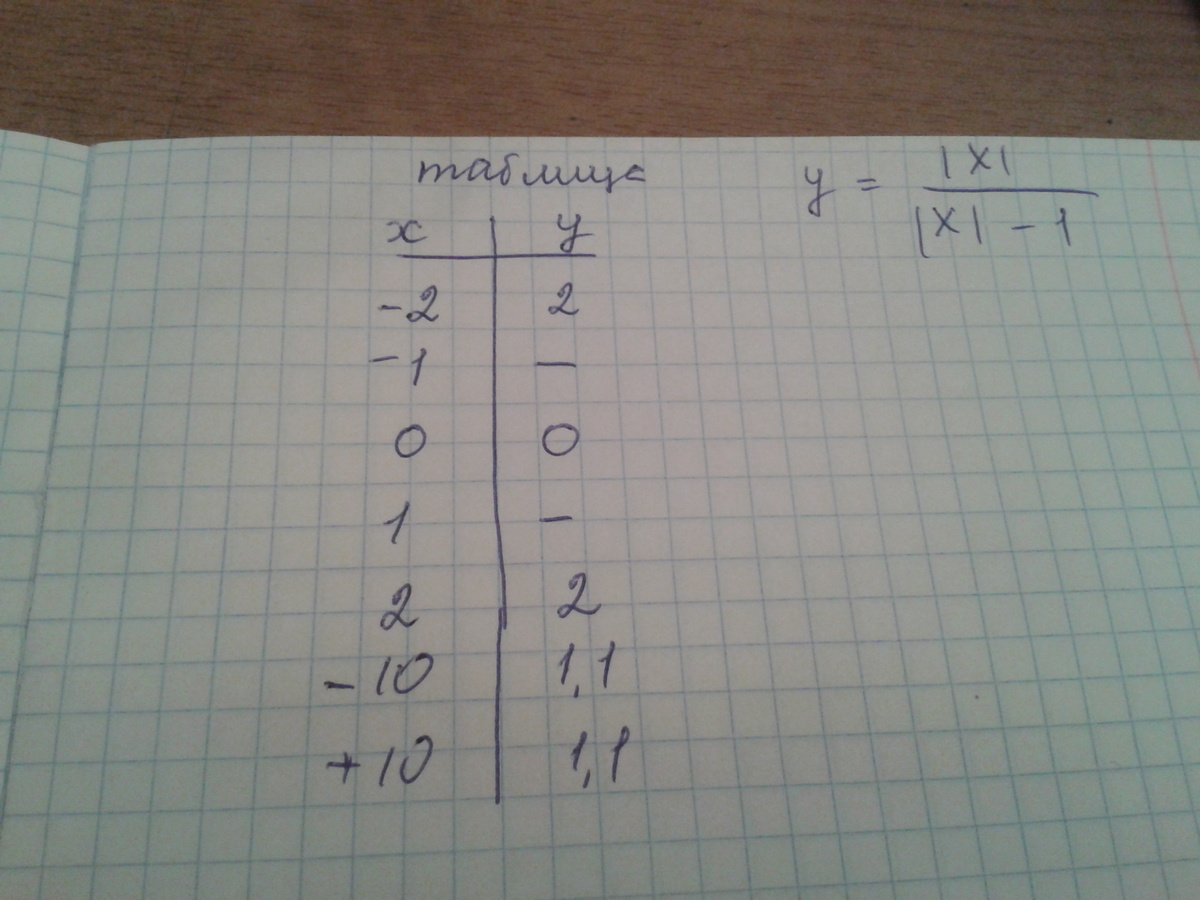 таблица
x y
-2 2
-1 —
0 0
1 —
2 2
-10 1,1
+10 1,1
y = |X| / |X| - 1